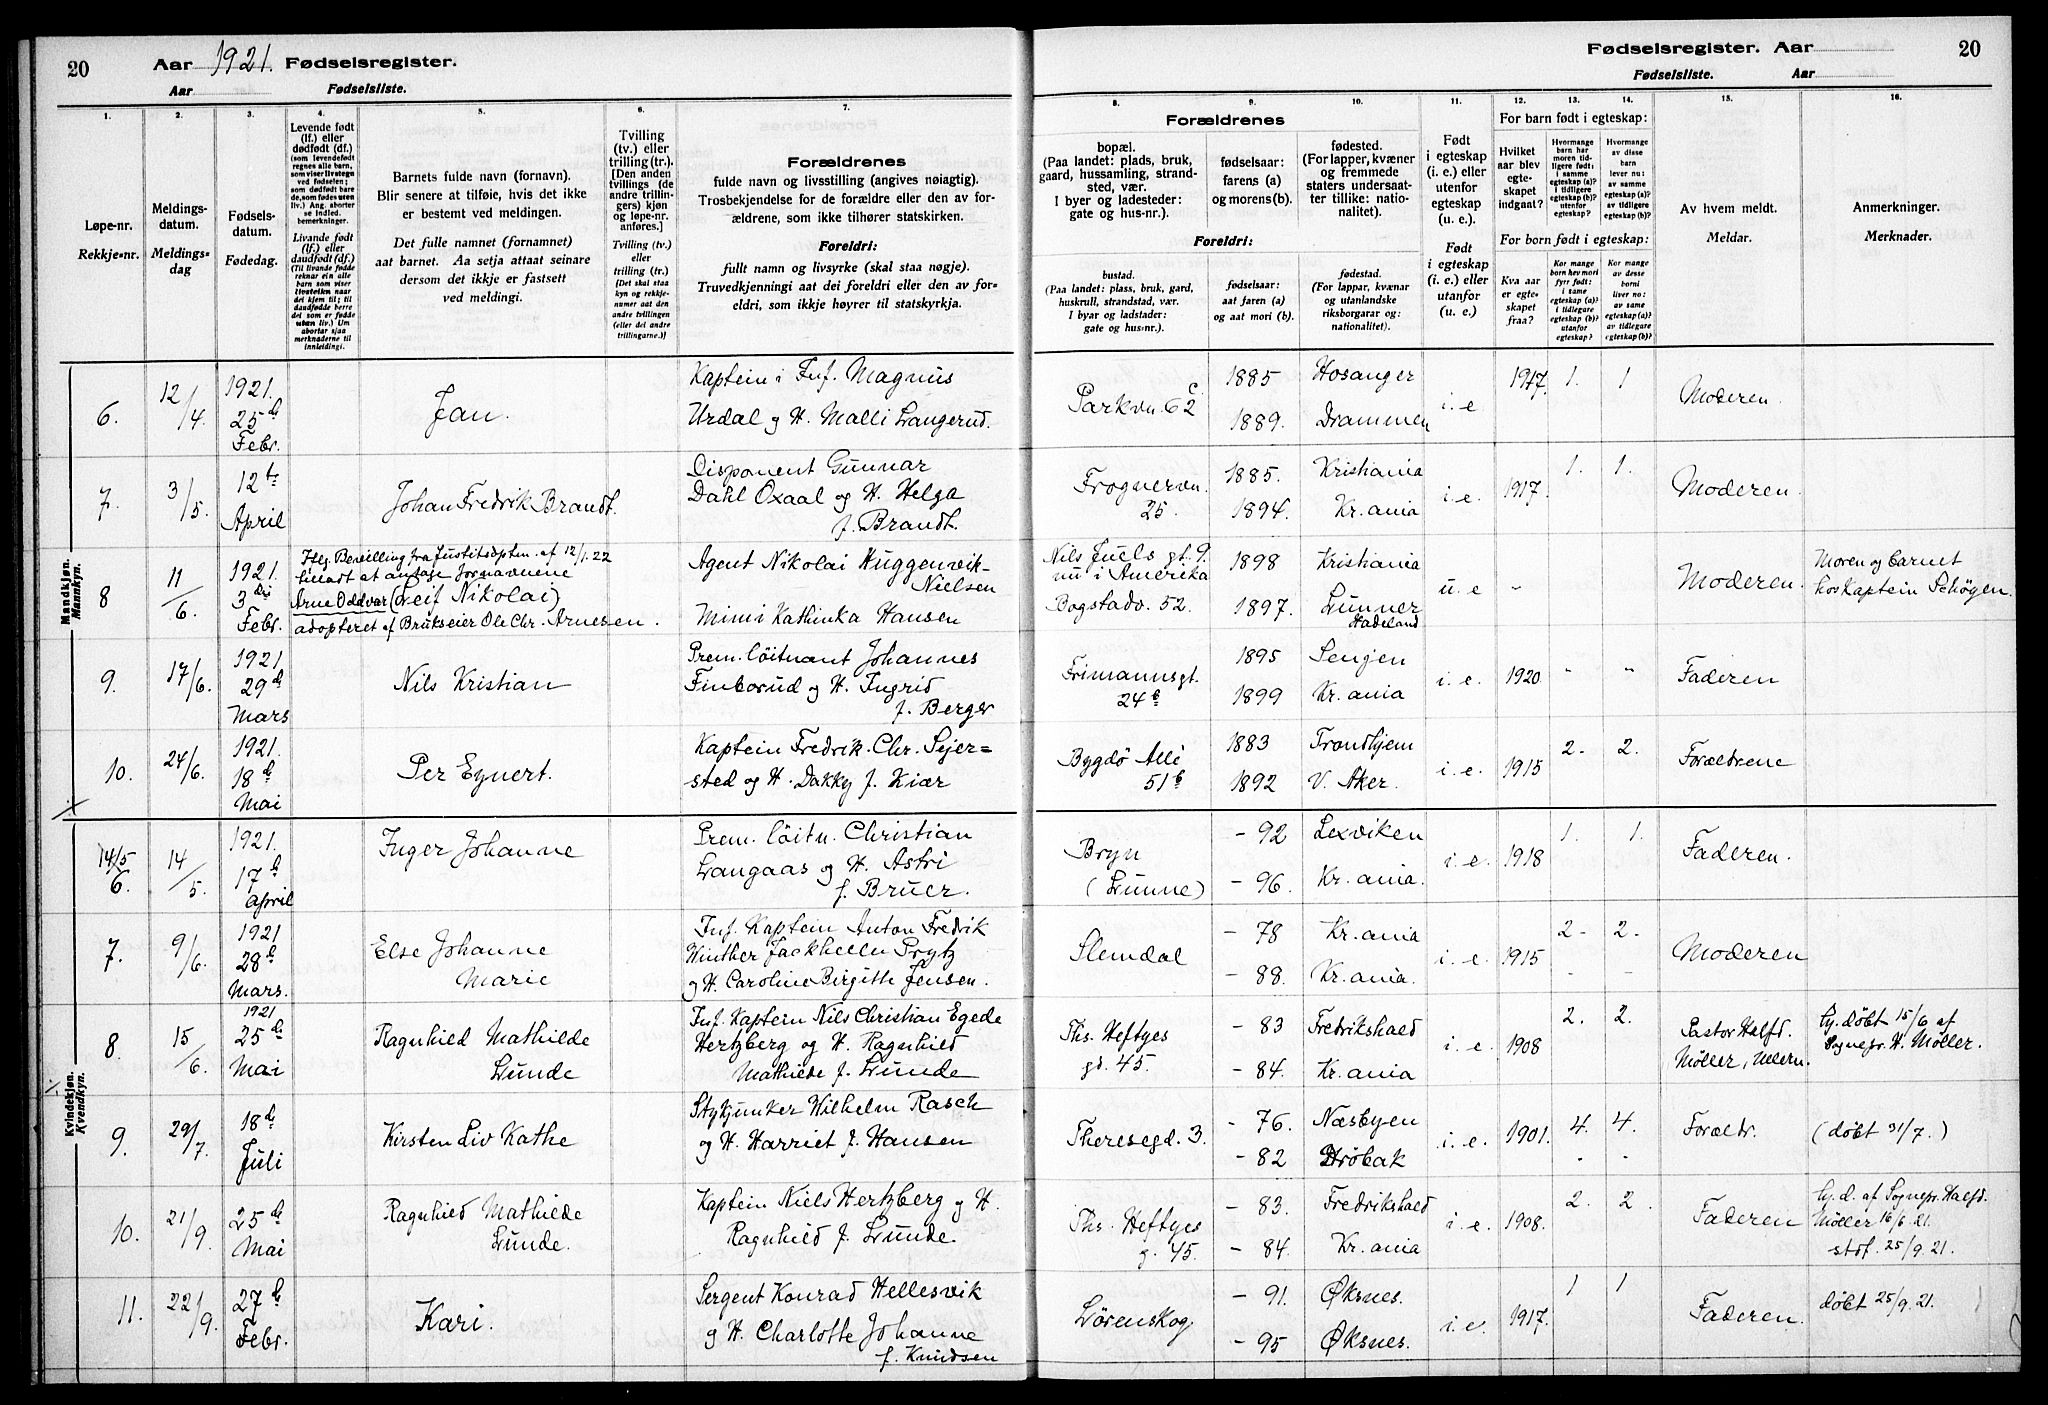 20 Aar 1921. Fødselsregister.
Aar Fødselsliste.
Fødselsregister. Aar 20
Fødselsliste. Aar
1.
Løpe-nr.
Rekkje-nr.
2.
Meldings-
datum.
Meldings-
dag
3.
Fødsels-
datum.
Fødedag.
4.
Levende født
(lf.) eller
dødfødt (df.)
(som levendefødt
regnes alle barn,
som viser livstegn
ved fødselen;
som dødfødt bare
de, som fødes uten
liv.) Ang. aborter
se indled.
bemerkninger.
Livande født
(lf.) eller
daudfødt (df.)
(Til livande fødde
reknar ein alle
barn som viser
livsteikn naar
dei kjem til; til
daudfødde berre
dei som er fødde
utan liv.) Um
abortar sjaa
merknaderne til
innleidingi.
5.
Barnets fulde navn (fornavn).
Blir senere at tilføie, hvis det ikke
er bestemt ved meldingen.
Det fulle namnet (fornamnet)
aat barnet. Aa setja attaat seinare
dersom det ikkje er fastsett
ved meldingi.
6.
Tvilling
(tv.) eller
trilling (tr.).
[Den anden
tvillings (de
andre trillin-
gers) kjøn
og løpe-nr.
anføres.]
Tvilling (tv.)
eller
trilling (tr.)
[Det skal staa
kyn og rekkje-
nummer aat den
andre tvillingen
(eller dei andre
trillingarne.)]
7.
Forældrenes
fulde navn og livsstilling (angives nøiagtig).
Trosbekjendelse for de forældre eller den av for-
ældrene, som ikke tilhører statskirken.
Foreldri:
fullt namn og livsyrke (skal staa nøgje).
Truvedkjenningi aat dei foreldri eller den av for-
eldri, som ikkje høyrer til statskyrkja.
Forældrenes
8.
bopæl.
(Paa landet: plads, bruk,
gaard, hussamling, strand-
sted, vær.
I byer og ladesteder:
gate og hus-nr.).
9.
fødselsaar:
farens (a)
og morens (b).
10.
fødested.
(For lapper, kvæner
og fremmede
staters undersaat-
ter tillike: natio-
nalitet).
Foreldri:
bustad.
(Paa landet: plass, bruk, gard,
huskrull, strandstad, vær.
I byar og ladstader:
gate og hus-nr.).
fødselsaar:
aat faren (a)
og aat mori (b).
fødestad.
(For lappar, kvænar
og utanlandske
riksborgarar og:
nationalitet).
11.
Født
i egteskap
(i. e.) eller
utenfor
egteskap
(u. e.).
Født
i egteskap
(i. e.) eller
utanfor
(u. e.)
For barn født i egteskap:
12.
Hvilket
aar blev
egte-
skapet
indgaat?
13.
Hvormange
barn har
moren tid-
ligere født:
i samme
egteskap (a)?
i tidligere
egteskap (b)?
utenfor
egteskap?
14.
Hvormange
av disse
barn
lever nu:
av samme
egteskap (a)?
av tidligere
egteskap (b)?
For born født i egteskap:
Kva aar
er egte-
skapet
fraa?
Kor mange
born hev mori
fyrr født:
i same
egteskap (a)?
i tidlegare
egteskap (b)?
utanfor
egteskap?
Kor mange
av desse
borni
liver no:
av same
egteskap (a)?
av tidlegare
egteskap (b)?
15.
Av hvem meldt.
Meldar.
16.
Anmerkninger.
Merknader.
Mandkjøn.
Mannkyn.
6. 12/4. 1921. 25d Febr. Jan. Kaptein i Inf. Magnus
Urdal og H. Malli Langerud.
Parkvn. 62c 1885 Hosanger i. e 1917. 1. 1 Moderen.
1889. Drammen
7. 3/5. 12te April Johan Fredrik Brandt. Disponent Gunnar
Dahl Oxaal og H. Helga
f. Brandt.
Frognervn. 25. 1885. Kristiania i. e. 1917. 1. 1. Moderen.
1894. Kr.ania
8 11/6. 1921. 3die Febr. Iflg. Bevilling fra Justitsdpten. af 12/1.22
tilladt at antage fornavnene
Arne Oddvar (Leif Nikolai)
adopteret af Brukseier Ole Chr. Arnesen.
Agent Nikolai Huggenvik-
Nielsen
Mimi Kathinka Hansen
Nils Juels gt. 9.
nu i Amerika
Bogstadv. 52.
1898 Kristiania
1897. Lunner
Hadeland
u. e " Moderen. Moren og barnet
hos Kaptein Schøyen.
9. 17/6. 1921 29d Mars Nils Kristian Prem. löitnant Johannes
Finborud og H. Ingrid
f. Berger
Frimannsgt.
24b
1895 Senjen i. e. 1920 " " Faderen
1899 Kr.ania
10. 24/6. 1921. 18d Mai Per Eynert. Kaptein Fredrik Chr. Sejer=
sted og H. Dakky f. Kiær
Bygdö Allé
51b
1883 Trondhjem i. e. 1915 2. 2. Forældrene
1892 V. Aker.
Kvindekjøn.
Kvendkyn.
14/5
6. 14/5. 1921. 17d april Inger Johanne Prem. löitn. Christian
Langaas og H. Astri
f. Bruer.
Bryn
(Lunne)
- 92 Lexviken i. e. 1918 1. 1. Faderen.
- 96. Kr.ania.
7. 9/6. 1921 28d Mars. Else Johanne
Marie
Inf. Kaptein Anton Fredrik
Winther Jackhelln Prytz
og H. Caroline Birgitte Jensen.
Slemdal - 78 Kr.ania i. e. 1915 2. 2. Moderen
- 88. Kr.ania. - -
8. 15/6. 1921 25d Mai Ragnhild Mathilde
Lunde
Inf. Kaptein Nils Christian Egede
Hertzberg og H. Ragnhild
Mathilde f. Lunde
Ths. Heftyes
gd. 45.
- 83 Fredrikshald i. e. 1908 2. 2. Pastor Halfd.
Möller, Ullern. hj. döbt 15/6 af
Sognepr. H. Möller.
- 84. Kr.ania
9. 29/7. 18d Juli Kirsten Liv Kathe Stykjunker Wilhelm Rasch
og H. Harriet f. Hansen
Theresegd. 3. - 76. Næsbyen i. e. 1901. 4. 4. Forældr. (döbt 31/7.)
- 82 Dröbak - -
10. 21/9. 25d Mai Ragnhild Mathilde
Lunde.
Kaptein Niels Hertzberg og H.
Ragnhild f. Lunde.
Ths. Heftyes
g. 45.
- 83. Fredrikshald i. e. 1908. 2. 2. Faderen hj. d. af Sognepr. Halfd.
Möller 16/6 21.
stdf. 25/9.21.
- 84. Kr.ania
11. 22/9. 27d Febr. Kari. Sergent Konrad Hellesvik
og H. Charlotte Johanne
f. Knudsen
Lörenskog - 91. Øksnes. i. e. 1917. 1 1 Faderen. döbt 25/9.21.
- 95 Øksnes.